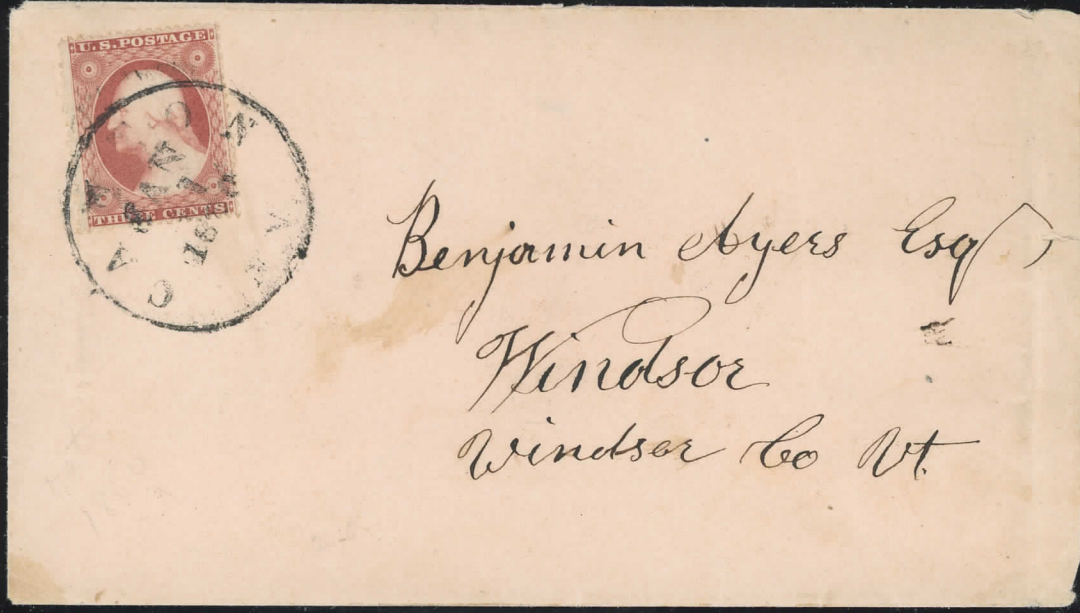 U.S. POSTAGE
THREE CENTS
Benjamin Ayers Esq
Windsor
Windsor Co Vt.